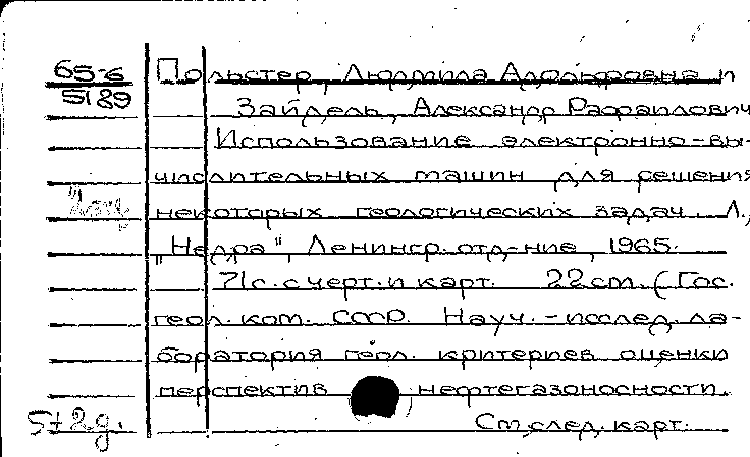 65-6
5189
Польстер, Людмила Адольфовна и
Зайдель, Александр Рафаилович
Использование электронно-вы-
числительных машин для решения
некоторых геологических задач. Л.,
"Недра", Ленингр. отд-ние, 1965.
71с. с черт. и карт. 22 cm. (Гос.
геол. ком. СССР. Науч.-исслед. ла-
боратория геол. критериев оценки
перспектив нефтегазоносности.
См. след. карт.